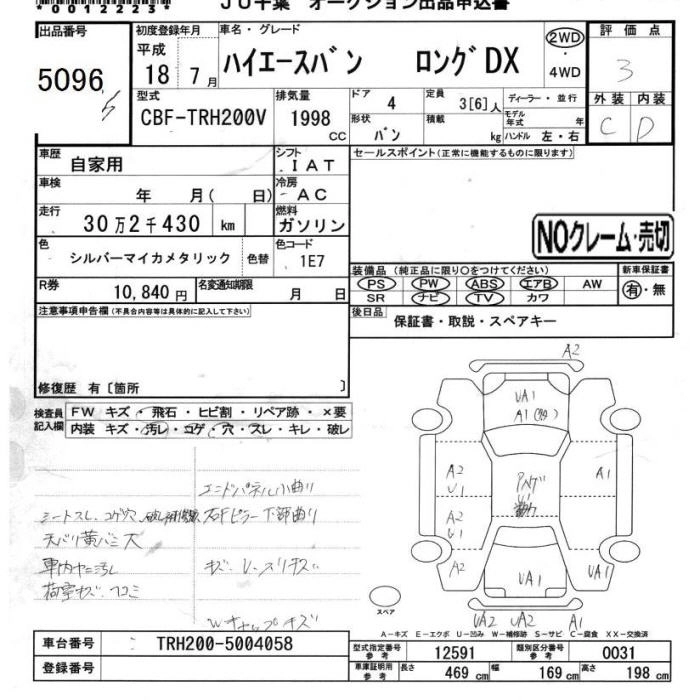 *00122323*
JU千葉 オークション出品申込書
出品番号 初度登録年月 車名・グレード 評価点
5096 平成 18年 7月 ハイエースバン ロングDX 2WD・4WD 3
型式 排気量 ドア 4 定員 3[6]人 ディーラー・並行 外装 内装
CBF-TRH200V 1998cc 形状 バン 積載 kg モデル年式 年 ハンドル 左・右 C D
車歴 自家用 シフト IAT セールスポイント(正常に機能するものに限ります)
車検 年 月( 日) 冷房 AC
走行 30万2千430 km 燃料 ガソリン
NOクレーム・売切
色 シルバーマイカメタリック 色替 色コード 1E7
装備品(純正品に限り○をつけてください) 新車保証書
PS PW ABS エアB AW 有・無
SR ナビ TV カワ
R券 10,840円 名変通知期限 月 日
後日品 保証書・取説・スペアキー
注意事項申告欄(不具合内容等は具体的に記入して下さい)
修復歴 有〔箇所 〕
検査員記入欄 FW キズ・飛石・ヒビ割・リペア跡・×要
内装 キズ・汚レ・コゲ・穴・スレ・キレ・破レ
A2
UA1
A1
A2
U1
A1
A2
U1
A2
UA1
UA1
UA2 UA2 A1
エンドパネル小曲り
シートスレ、コゲ穴
ピラー下部曲り
天バリ黄バミ大
車内ヤニ汚レ
荷室キズ・凹ミ
Wキャップキズ
スペア
A-キズ E-エクボ U-凹み W-補修跡 S-サビ C-腐食 XX-交換済
車台番号 TRH200-5004058 型式指定番号 参考 12591 類別区分番号 参考 0031
登録番号 車庫証明用 参考 長さ 469 cm 幅 169 cm 高さ 198 cm